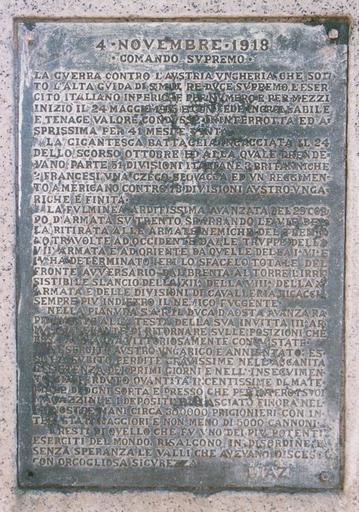 4·NOVEMBRE·1918
·COMANDO SVPREMO·
LA GVERRA CONTRO L'AVSTRIA VNGHERIA CHE SOT
TO L'ALTA GVIDA DI S.M. IL RE DVCE SVPREMO L'ESER
CITO ITALIANO INFERIORE PER NVMERO E PER MEZZI
INIZIÒ IL 24 MAGGIO 1915 E CON FEDE INCROLLABILE
E TENACE VALORE CONDVSSE ININTERROTTA ED A
SPRISSIMA PER 41 MESI È VINTA
LA GIGANTESCA BATTAGLIA INGAGGIATA IL 24
DELLO SCORSO OTTOBRE ED ALLA QVALE PRENDE
VANO PARTE 51 DIVISIONI ITALIANE 3 BRITANNICHE
2 FRANCESI VNA CZECO SLOVACCA ED VN REGGIMEN
TO AMERICANO CONTRO 73 DIVISIONI AVSTRO VNGA
RICHE È FINITA
LA FVLMINEA ARDITISSIMA AVANZATA DEL 29 CORPO
D'ARMATA SV TRENTO SBARRANDO LE VIE DEL
LA RITIRATA ALLE ARMATE NEMICHE DEL TRENTI
NO TRAVOLTE AD OCCIDENTE DALLE TRVPPE DELLA
VII ARMATA E AD ORIENTE DA QVELLE DELLA I VI E
IV HA DETERMINATO IERI LO SFACELO TOTALE DEL
FRONTE AVVERSARIO DAL BRENTA AL TORRE L'IRRE
SISTIBILE SLANCIO DELLA XII DELLA VIII DELLA X
ARMATA E DELLE DIVISIONI DI CAVALLERIA RICACCIA
SEMPRE PIV INDIETRO IL NEMICO FVGGENTE
NELLA PIANVRA S.A.R. IL DVCA D'AOSTA AVANZA RA
PIDAMENTE ALLA TESTA DELLA SVA INVITTA III AR
MATA ANELANTE DI RITORNARE SVLLE POSIZIONI CHE
VITTORIOSAMENTE CONQVISTATE
L'ESERCITO AVSTRO VNGARICO È ANNIENTATO ES
SO HA SVBITO PERDITE GRAVISSIME NELL'ACCANITA
RESISTENZA DEI PRIMI GIORNI E NELL'INSEGVIMEN
TO HA PERDVTO QVANTITÀ INGENTISSIME DI MATE
RIALE DI OGNI SORTA E PRESSO CHE PER INTERO I SVOI
MAGAZZINI E I DEPOSITI HA LASCIATO FINORA NEL
LE NOSTRE MANI CIRCA 300000 PRIGIONIERI CON IN
TERI STATI MAGGIORI E NON MENO DI 5000 CANNONI
I RESTI DI QVELLO CHE FV VNO DEI PIV POTENTI
ESERCITI DEL MONDO RISALGONO IN DISORDINE E
SENZA SPERANZA LE VALLI CHE AVEVANO DISCESO
CON ORGOGLIOSA SICVREZZA
DIAZ